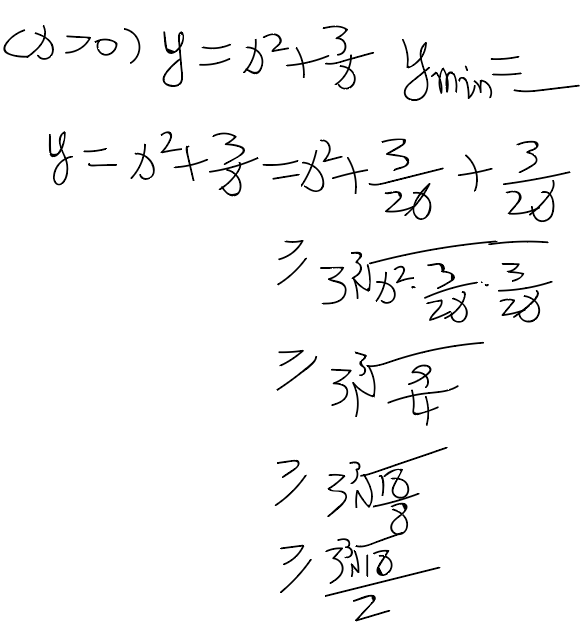 (x>0) y=x²+3/x y_min=__
y=x²+3/x=x²+3/(2x)+3/(2x)
≥3∛(x²·3/(2x)·3/(2x))
≥3∛(9/4)
≥3∛(18/8)
≥(3∛18)/2